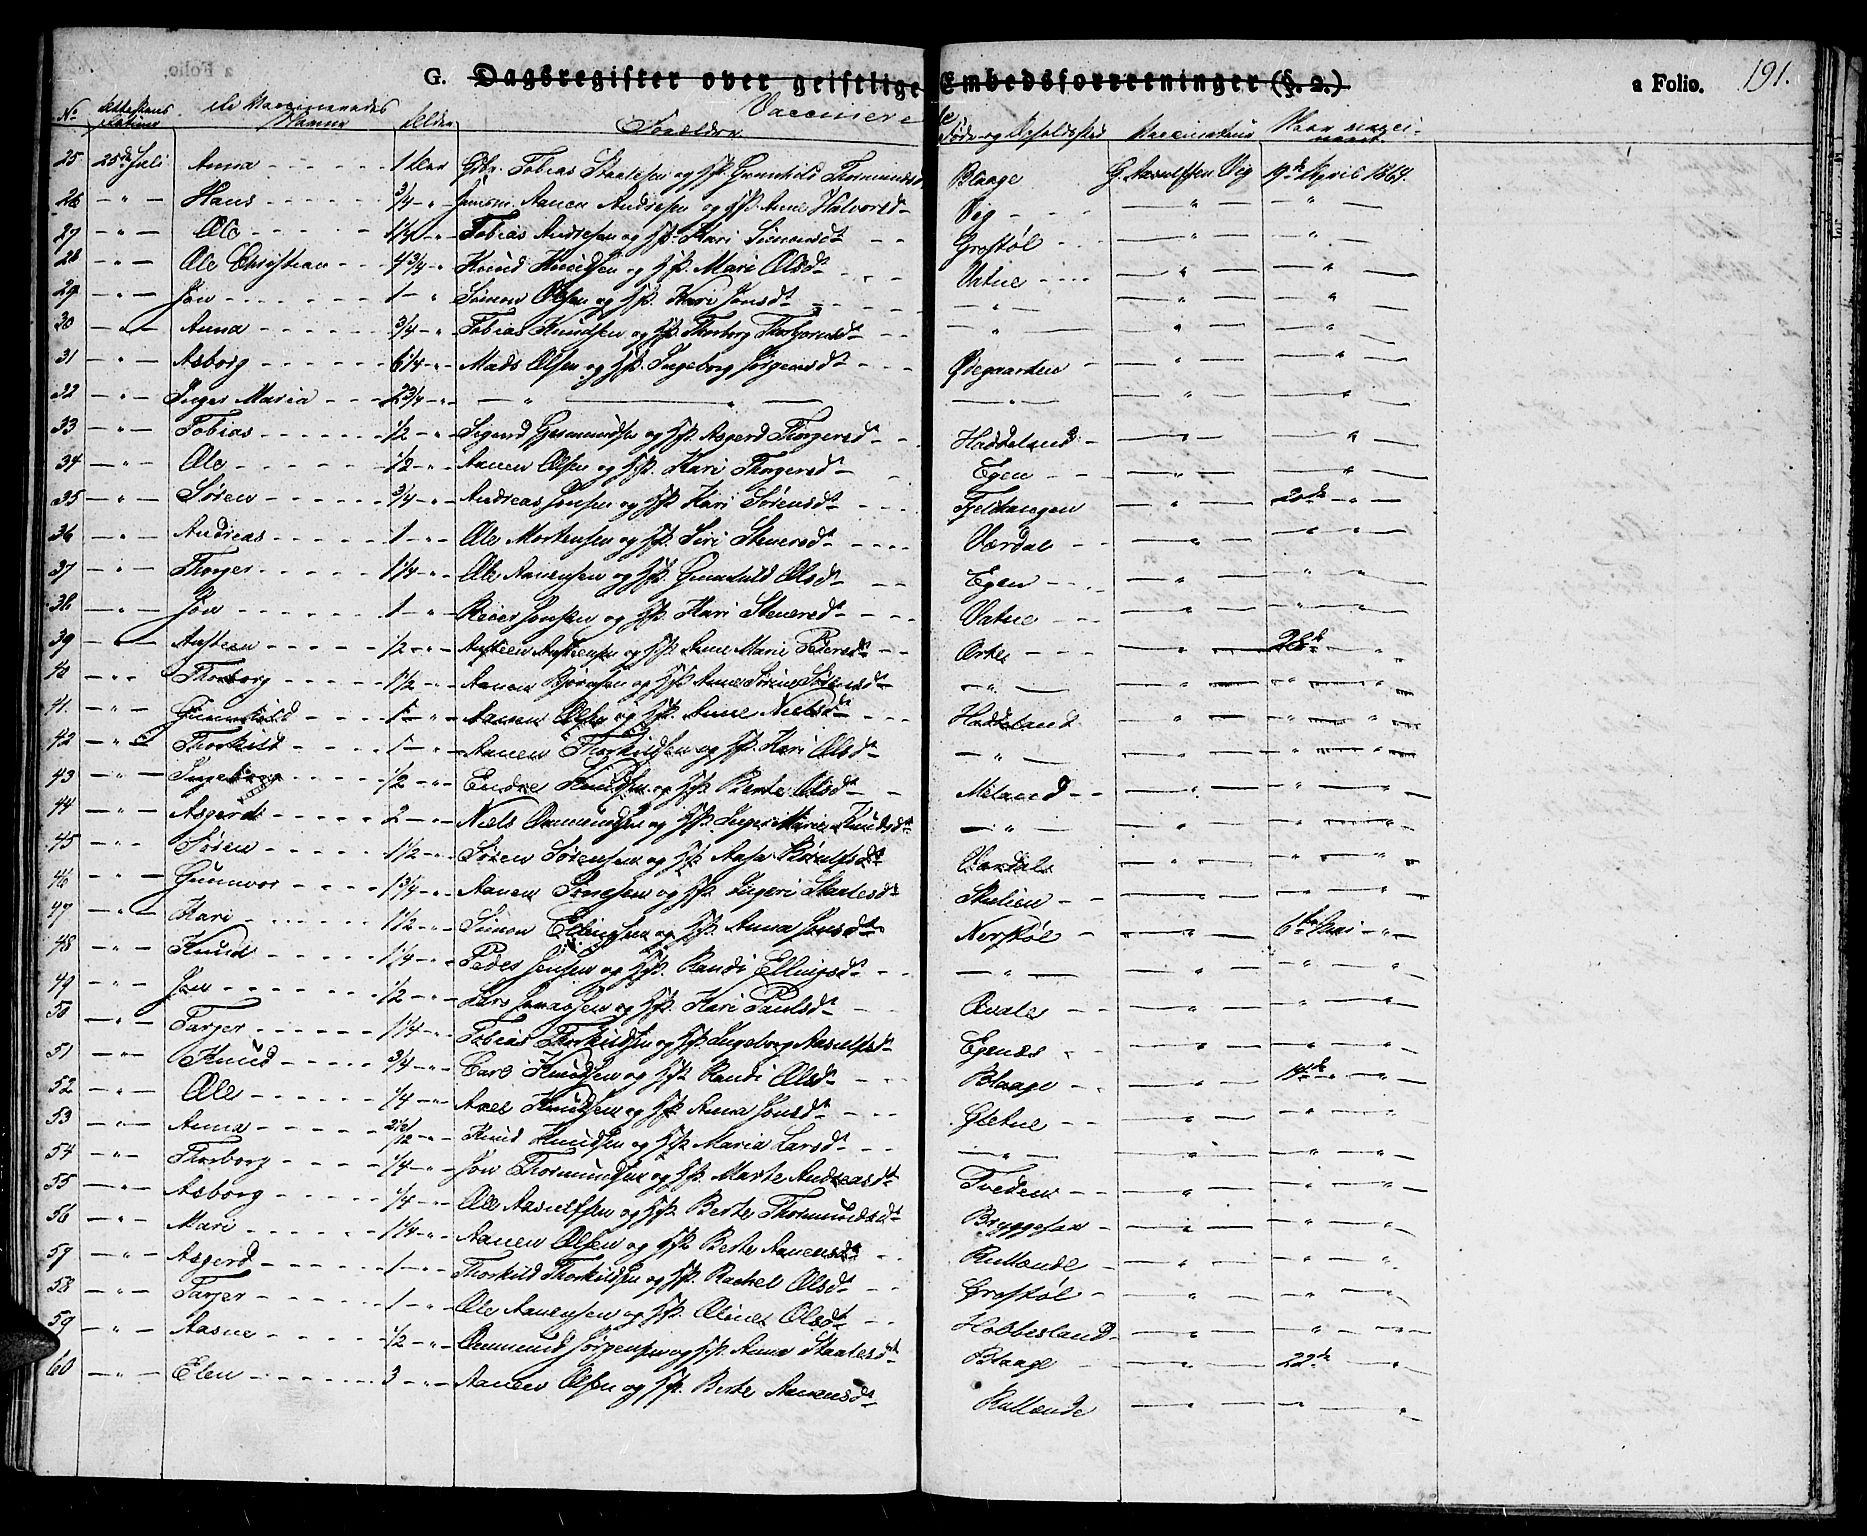 G. Dagsregister over geistlige Embedsforretninger (§. 2.) a Folio. 191.
Vaccinere de
No de Vaccineredes Navne Alder Forældre Føde og Opholdssted Vaccinateur Naar vaccineret
25 25de Juli Anna 1 Aar Gbr. Tobias Staalesen og Hst. Gunnhild Thormundsd Blaage G. Aasulfsen Vig 19de April 1864.
26 - " - Hans 3/4 - " Aanen Andresen og Hst. Anne Halvorsd - Vig - " - - " -
27 - " - Ole 1 1/4 - " - Tobias Andresen og Hst. Kari Simonsdt - - Grostøl - " - - " -
28 - " - Ole Christian 4 3/4 - " Knud Knudsen og Hst. Mari Olsdt - Vatne - " - - " -
29 - " - Jon 1 - " Simon Olsen og Hst. Kari Jonsdt - - " - - " - - " -
30 - " - Anna 3/4 - " - Tobias Knudsen og Hst. Thorborg Thorbjørnsdt - - " - - " - - " -
31 - " - Asborg 6 1/4 - " - Mads Olsen og Hst. Ingeborg Jørgensdt - Ødegaarden - " - - " -
32 - " - Inger Maria 2 3/4 - " - - " - " - - " - - " - - " -
33 - " - Tobias 1/2 - " - Sigurd Gunmundsen og Hst. Asgerd Thorgersdt - Haddeland - " - - " -
34 - " - Ole 1/2 - " - Aanen Olsen og Hst. Kari Thorgersdt - Egen - " - - " -
35 - " - Søren 3/4 - " - Andreas Jonsen og Hst. Kari Sørensdt - Fjeldsengen - " - 20de - " -
36 - " - Andreas 1 - " - Ole Mortensen og Hst. Siri Stenersdt - Værdal - " - - " - " -
37 - " - Thorger 1 1/4 - " - Ole Aanensen og Hst. Gunnhild Olsdt - Egen - " - - " - " -
38 - " - Jon 1 - " Reier Jonsen og Hst. Kari Stenersdt - Vatne - " - - " - " -
39 - " - Austen 1/2 - " - Austen Austensen og Hst. Anne Marie Pedersdt - - " - 28de - " -
40 - " - Thorborg 1 1/2 - " - Aanen Bjørnsen og Hst. Anne Sørine Sørensdt - " - - " - - " - " -
41. - " - Gunnhild 1 - " - Aanen Olsen og Hst. Anne Nielsdt - Haddeland - " - - " - " -
42 - " - Thorkild 1 - " - Aanen Thorkildsen og Hst. Kari Olsdt - " - - " - - " - " -
43 - " - Ingeborg 1/2 - " Endre Knudsen og Hst. Berte Olsdt - Meland - " - - " - " -
44 - " - Asgerd 2 - " - Niels Ommundsen og Hst. Inger Marie Knudsdt - " - - " - - " - " -
45 - " - Søren 1 1/2 - " - Søren Sørensen og Hst. Aasa Børulfsdt Værdal - " - - " - " -
46 - " - Gunnvor 1 3/4 - " - Aanen Gregersen og Hst. Ingeri Staalesdt - " - - " - " -
47 - " - Kari 1 1/2 - " - Simon Ellingsen og Hst. Anna Jonsdt Nerstøl - " - 6te Mai - " -
48 - " - Knud 1 1/4 - " - Peder Jensen og Hst. Randi Ellingsdt - - " - - " - - " - " -
49 - " - Jon 1/2 - " - Lars Jonassen og Hst. Kari Paulsdt - Qvale - " - - " - " -
50 - " - Tarjer 1 1/4 - " - Tobias Thorkildsen og Hst. Ingeborg Aasulfsdt - Egenes - " - - " - " -
51 - " - Knud 3/4 - " - Carl Knudsen og Hst. Randi Olsdt - Blaage - " - - " -
52 - " - Ole 1/4 - " - Axel Knudsen og Hst. Anna Jonsdt - - " - - " - " -
53 - " - Anna - " - Knud Knudsen og Hst. Maria Larsdt - - " - - " - - " - " -
54 - " - Thorborg 1/4 - " - Jon Thormundsen og Hst. Marte Andreasdt - Tveden - " - - " - " -
55 - " - Asborg 1/4 - " - Ole Aasulfsen og Hst. Berte Thormundsdt - Bryggesaa - " - - " - " -
56 - " - Mari 1 1/4 - " - Aanen Olsen og Hst. Berte Aanensdt - Rullande - " - - " - " -
57 - " - Asgerd 1 - " - Thorkild Thorkildsen og Hst. Rachel Olsdt - Grostøl - " - - " - " -
58 - " - Tarjer 1 - " - Ole Aanensen og Hst. Oline Olsdt - Hobbesland - " - - " - " -
59 - " - Aasne 1/2 - " - Ommund Jørgensen og Hst. Anna Staalesdt Blaage - " - 22de - " -
60 - " - Elen 3 - " - Aanen Olsen og Hst. Berte Aanensdt - Rullande - " - - " - " -